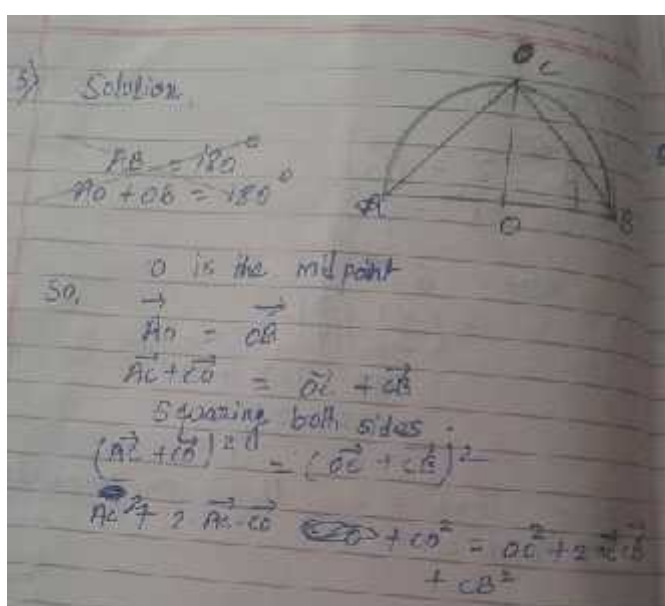 5) Solution,
AB = 180°
AO + OB = 180°
C
A
O
B
O is the midpoint
So,
AO = OB
AC + CO = OC + CB
Squaring both sides.
(AC + CO)² = (OC + CB)²
AC² + 2 AC·CO + CO² = OC² + 2 OC·CB
+ CB²